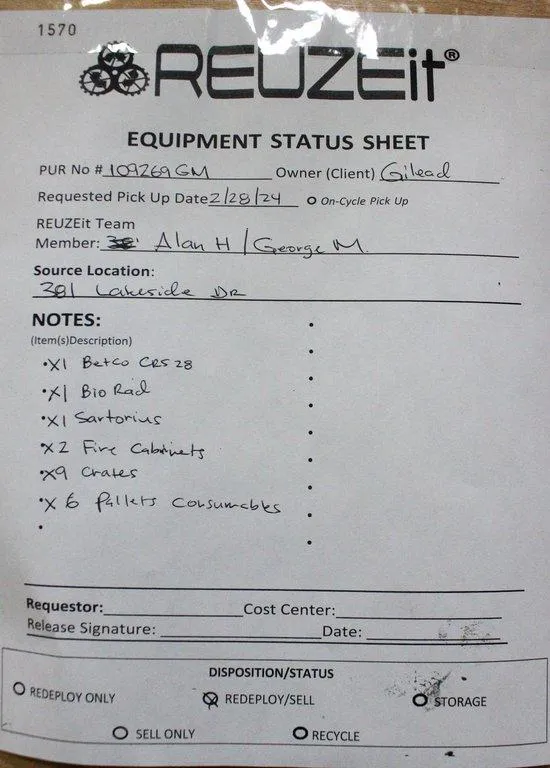 1570
REUZEit®
EQUIPMENT STATUS SHEET
PUR No # 109269GM Owner (Client) Gilead
Requested Pick Up Date 2/28/24 O On-Cycle Pick Up
REUZEit Team
Member: Alan H / George M.
Source Location:
381 Lakeside DR
NOTES:
(Item(s)Description)
•X1 Betco CRS 28
•X1 Bio Rad
•X1 Sartorius
•X2 Fire Cabinets
•X9 Crates
•X 6 Pallets Consumables
Requestor: Cost Center:
Release Signature: Date:
DISPOSITION/STATUS
REDEPLOY ONLY REDEPLOY/SELL STORAGE
SELL ONLY RECYCLE